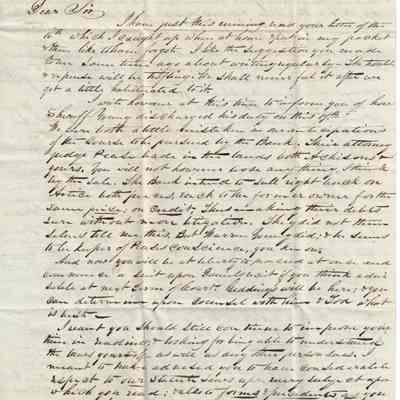 Dear Sir
I have just this evening read your letter of the
10th which I caught up when at home & put in my pocket
& then like to have forgot. I like the suggestion you made
some time ago about writing regularly. The trouble
& expense will be trifling. We shall never fail it after we
get a little habituated to it.
I write however at this time to inform you of how
Sheriff Young discharged his duty on this 17th
We were both a little mistaken in our anticipations
of the course to be pursued by the Bank. Their attorney
Judge Pease bade in the lands both Achisons &
yours. You will not however lose any thing, I think
by the sale. The Bank intend to sell right back on
to the former owner for the
same price, on credit & thus making their debts
sure without more litigation. They did not them
selves tell me this. But Warren Young did; & he seems
to be keeper of Conscience, you know.
And now you will be at liberty to proceed at once and
commence a suit upon if you think advi
sable at next term of Court. Giddings will be here; & you
can determine upon counsel with him & Tod what
is best
I want you should still continue to improve your
time in reading, & looking for being able to understand
the laws yourself as well as any other person does. I
meant to have advised you to have considerable
respect to our Statute Laws upon every subject upon
which you read; & also to forms & precedents as you